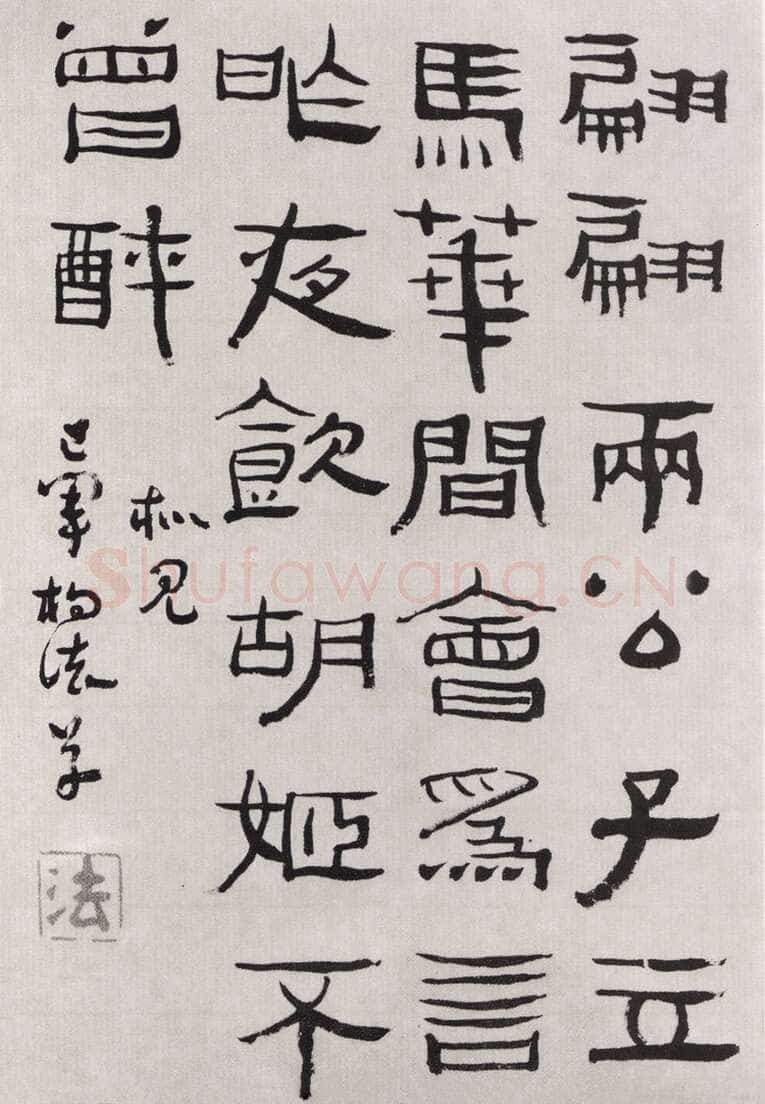 翩翩兩公子立
馬華間會為言
昨夜飲胡姬不
曾醉
杌見
己軍
法
Shufawang.CN